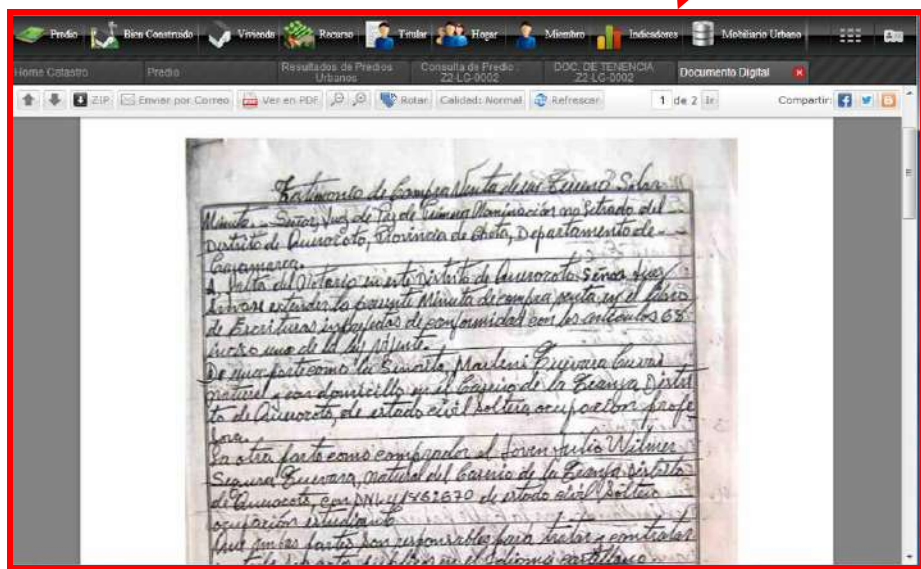 Predio Bien Construido Vivienda Recurso Titular Hogar Miembro Indicadores Mobiliario Urbano
Home Catastro Predio Resultados de Predios Urbanos Consulta de Predio : Z2-LG-0002 DOC. DE TENENCIA Z2-LG-0002 Documento Digital
ZIP Enviar por Correo Ver en PDF Rotar Calidad: Normal Refrescar 1 de 2 Ir Compartir:
Testimonio de Compra Venta de un Terreno Solar
Minuta - Señor, Juez de Paz de Primera Nominación no letrado del
Distrito de Querocoto, Provincia de Chota, Departamento de
Cajamarca.
A falta del Notario en este Distrito de Querocoto, Señor Juez
sirvase extender la presente Minuta de compra venta, en el libro
de Escrituras imperfectas de conformidad con los articulos 68
inciso uno de la ley vijente.
De una parte como la Señorita, Marleni Guevara Cuevas
natural y con domicilio en el Caserio de la Granja Distri
to de Querocoto, de estado civil soltera ocupacion profe
sora.
La otra parte como comprador el Joven Julio Wilmer
Segura Guevara, natural del Caserio de la Granja Distrito
de Querocoto, con DNI. de estado civil Soltero
ocupación estudiante
Que ambas partes son responsables para tratar y contratar
en el Idioma castellano